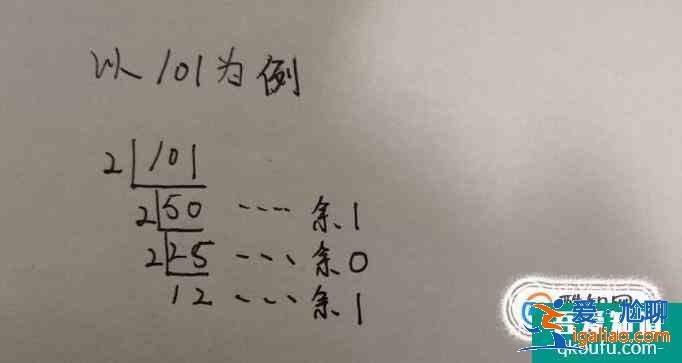 以101为例
2 101
2 50 ---- 余1
2 25 --- 余0
12 --- 余1
爱尴聊
igaliao.com
qkoufu.com